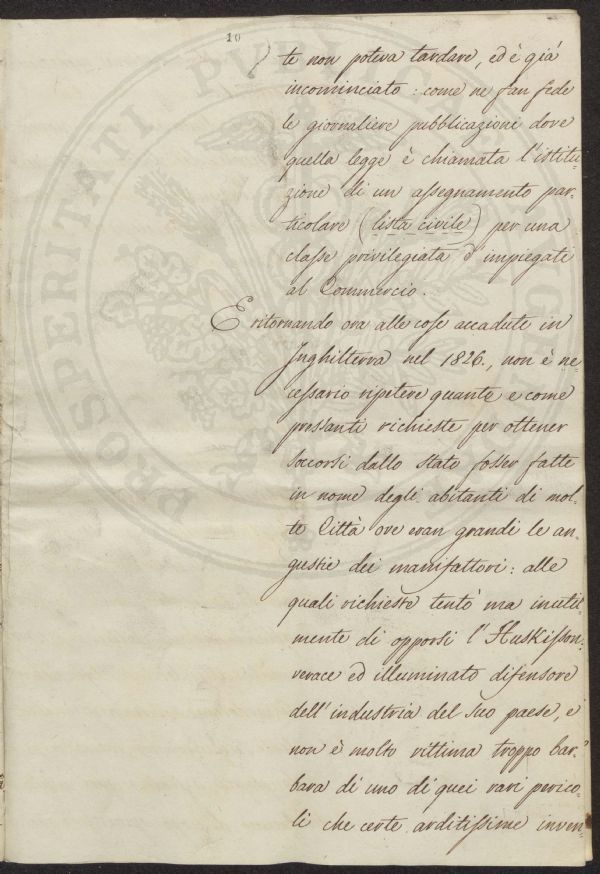 10
te non poteva tardare, ed è già
incominciato: come ne fan fede
le giornaliere pubblicazioni dove
quella legge è chiamata l'istitu-
zione di un assegnamento par-
ticolare (lista civile) per una
classe privilegiata d'impiegati
al Commercio.
E ritornando ora alle cose accadute in
Inghilterra nel 1826., non è ne-
cessario ripetere quante e come
pressanti richieste per ottener
soccorsi dallo stato fosser fatte
in nome degli abitanti di mol-
te Città ove eran grandi le an-
gustie dei manifattori: alle
quali richieste tentò ma inutil-
mente di opporsi l'Huskisson,
verace ed illuminato difensore
dell'industria del suo paese, e
non è molto vittima troppo bar-
bara di uno di quei rari perico-
li che certe arditissime inven-
PROSPERITATI PVBLICAE